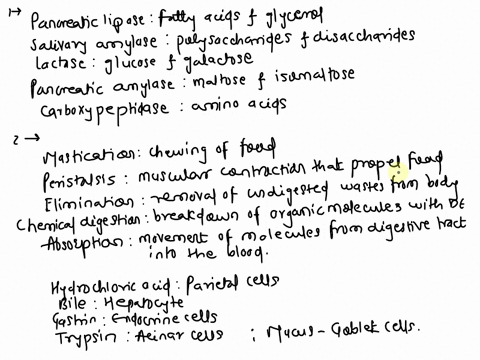 1→
Pancreatic lipase : fatty acids & glycerol
Salivary amylase : polysaccharides & disaccharides
Lactase : glucose & galactose
Pancreatic amylase : maltose & isomaltose
Carboxypeptidase : amino acids
2→
Mastication : chewing of food
Peristalsis : muscular contraction that propel food
Elimination : removal of undigested wastes from body
Chemical digestion : breakdown of organic molecules with DE
Absorption : movement of molecules from digestive tract
into the blood.
Hydrochloric acid : Parietal cells
Bile : Hepatocyte
Gastrin : Endocrine cells
Trypsin : Acinar cells ; Mucus - Goblet cells.